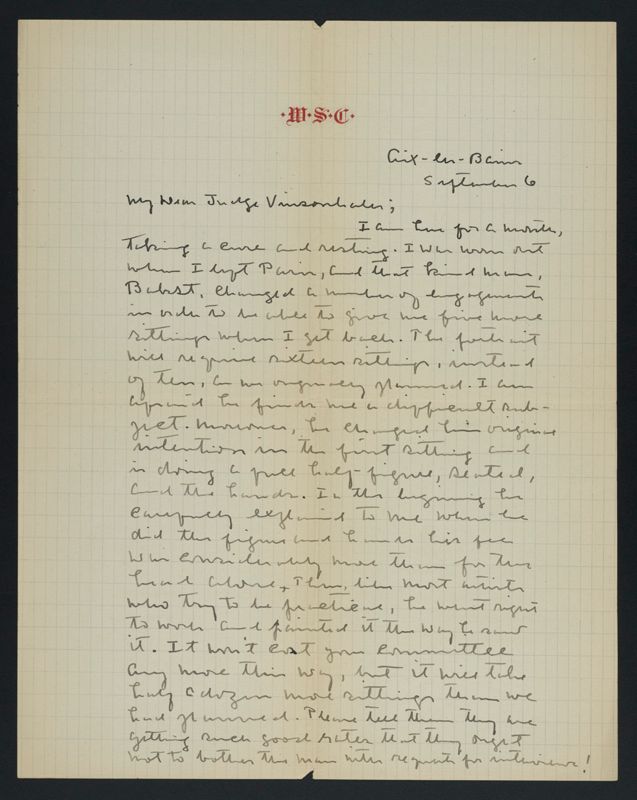 ·W·S·C·
Aix-les-Bains
September 6
My Dear Judge Vinsonhaler;
I am here for a month,
taking a cure and resting. I was worn out
when I left Paris, and that kind man,
Bakst, changed a number of engagements
in order to be able to give me five more
sittings when I get back. The portrait
will require sixteen sittings, instead
of ten, as we originally planned. I am
afraid he finds me a difficult sub-
ject. Moreover, he changed his original
intention in the first sitting and
is doing a full half-figure, seated,
and the hands. In the beginning he
carefully explained to me when he
did the figure and hands his fee
was considerably more than for the
head alone. Then, like most artists
who try to be practical, he went right
to work and painted it the way he saw
it. It won't cost your Committee
any more this way, but it will take
half a dozen more sittings than we
had planned. Please tell them they are
getting such good rates that they ought
not to bother the man with requests for interviews!